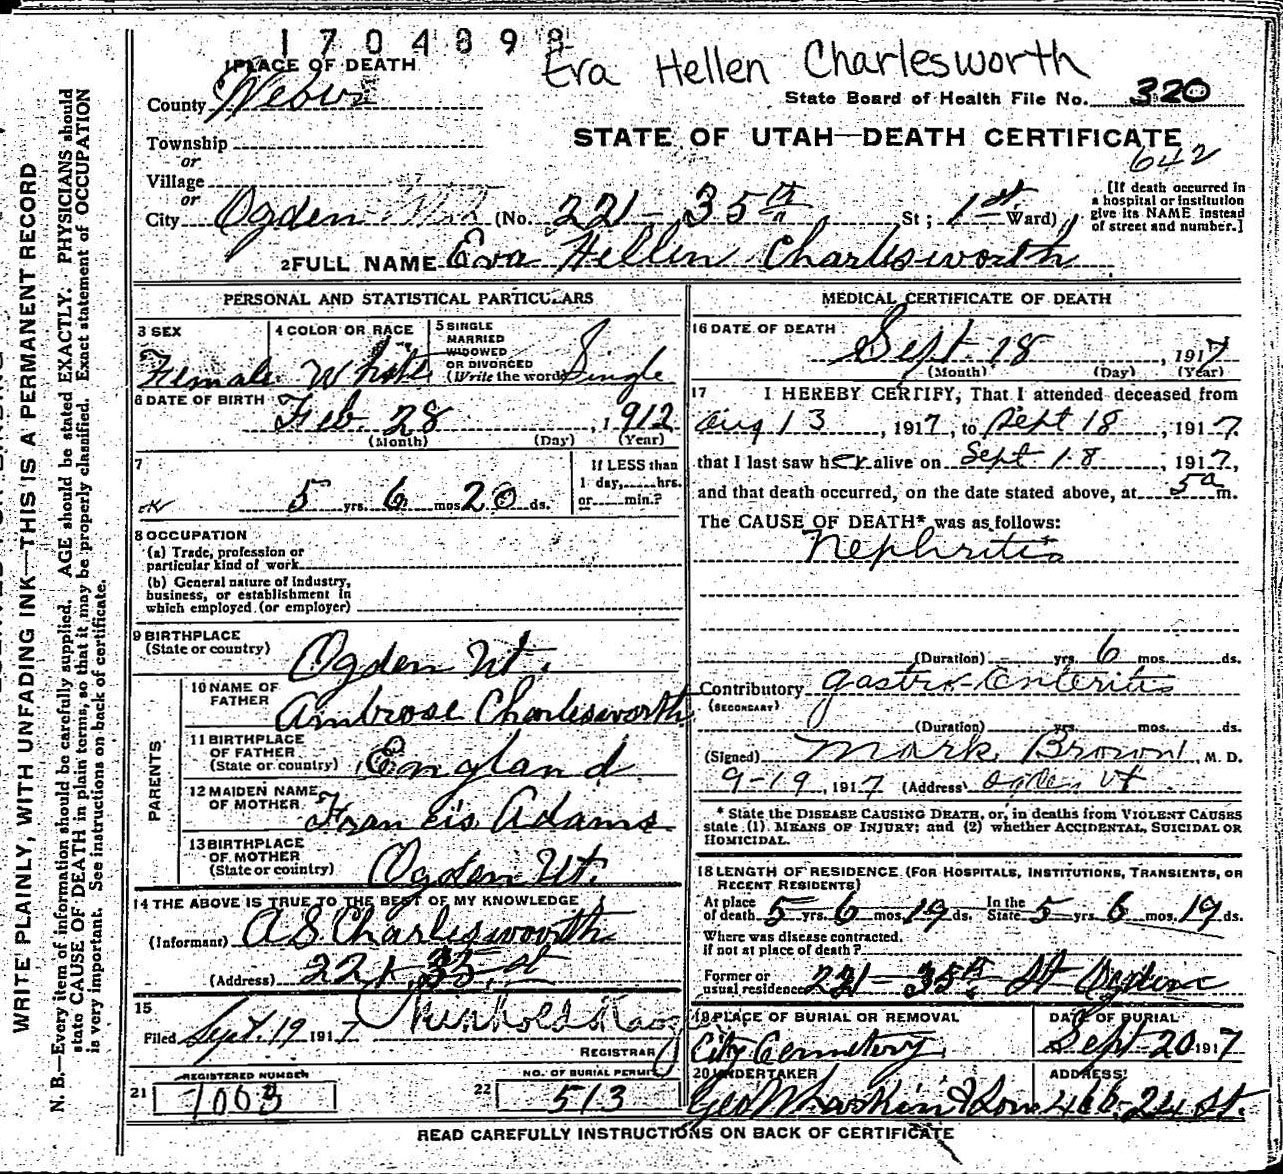 1704898
Eva Hellen Charlesworth
1 PLACE OF DEATH
County Weber
State Board of Health File No. 320
Township
STATE OF UTAH—DEATH CERTIFICATE
or
642
Village
or
City Ogden (No. 221-35th St; 1st Ward)
[If death occurred in
a hospital or institution
give its NAME instead
of street and number.]
2 FULL NAME Eva Hellen Charlesworth
PERSONAL AND STATISTICAL PARTICULARS
3 SEX Female
4 COLOR OR RACE White
5 SINGLE
MARRIED
WIDOWED
OR DIVORCED
(Write the word) Single
6 DATE OF BIRTH Feb. 28, 1912
(Month) (Day) (Year)
7
5 yrs. 6 mos 20 ds.
If LESS than
1 day, hrs.
or min.?
8 OCCUPATION
(a) Trade, profession or
particular kind of work
(b) General nature of industry,
business, or establishment in
which employed (or employer)
9 BIRTHPLACE
(State or country) Ogden Ut.
PARENTS
10 NAME OF
FATHER Ambrose Charlesworth
11 BIRTHPLACE
OF FATHER
(State or country) England
12 MAIDEN NAME
OF MOTHER Francis Adams
13 BIRTHPLACE
OF MOTHER
(State or country) Ogden Ut.
14 THE ABOVE IS TRUE TO THE BEST OF MY KNOWLEDGE
(Informant) A S Charlesworth
(Address) 221-35 st
15
Filed Sept. 19 1917
REGISTRAR
REGISTERED NUMBER
21 1003
NO. OF BURIAL PERMIT
22 513
MEDICAL CERTIFICATE OF DEATH
16 DATE OF DEATH
Sept. 18, 1917
(Month) (Day) (Year)
17 I HEREBY CERTIFY, That I attended deceased from
Aug 13, 1917, to Sept 18, 1917.
that I last saw her alive on Sept 18, 1917,
and that death occurred, on the date stated above, at 5a m.
The CAUSE OF DEATH* was as follows:
Nephritis
(Duration) yrs. 6 mos. ds.
Contributory Gastro-Enteritis
(SECONDARY)
(Duration) yrs. mos. ds.
(Signed) Mark Brown, M. D.
9-19, 1917 (Address) Ogden Ut
* State the DISEASE CAUSING DEATH, or, in deaths from VIOLENT CAUSES
state (1) MEANS OF INJURY; and (2) whether ACCIDENTAL, SUICIDAL OR
HOMICIDAL.
18 LENGTH OF RESIDENCE (FOR HOSPITALS, INSTITUTIONS, TRANSIENTS, OR
RECENT RESIDENTS)
At place of death 5 yrs. 6 mos. 19 ds. In the State 5 yrs. 6 mos. 19 ds.
Where was disease contracted.
if not at place of death?
Former or
usual residence 221-35th St Ogden
19 PLACE OF BURIAL OR REMOVAL
City Cemetery
DATE OF BURIAL
Sept 20 1917
20 UNDERTAKER
Geo W Larkin & Son
ADDRESS
466-24 St.
READ CAREFULLY INSTRUCTIONS ON BACK OF CERTIFICATE
WRITE PLAINLY, WITH UNFADING INK—THIS IS A PERMANENT RECORD
N. B.—Every item of information should be carefully supplied. AGE should be stated EXACTLY. PHYSICIANS should
state CAUSE OF DEATH in plain terms, so that it may be properly classified. Exact statement of OCCUPATION
is very important. See instructions on back of certificate.